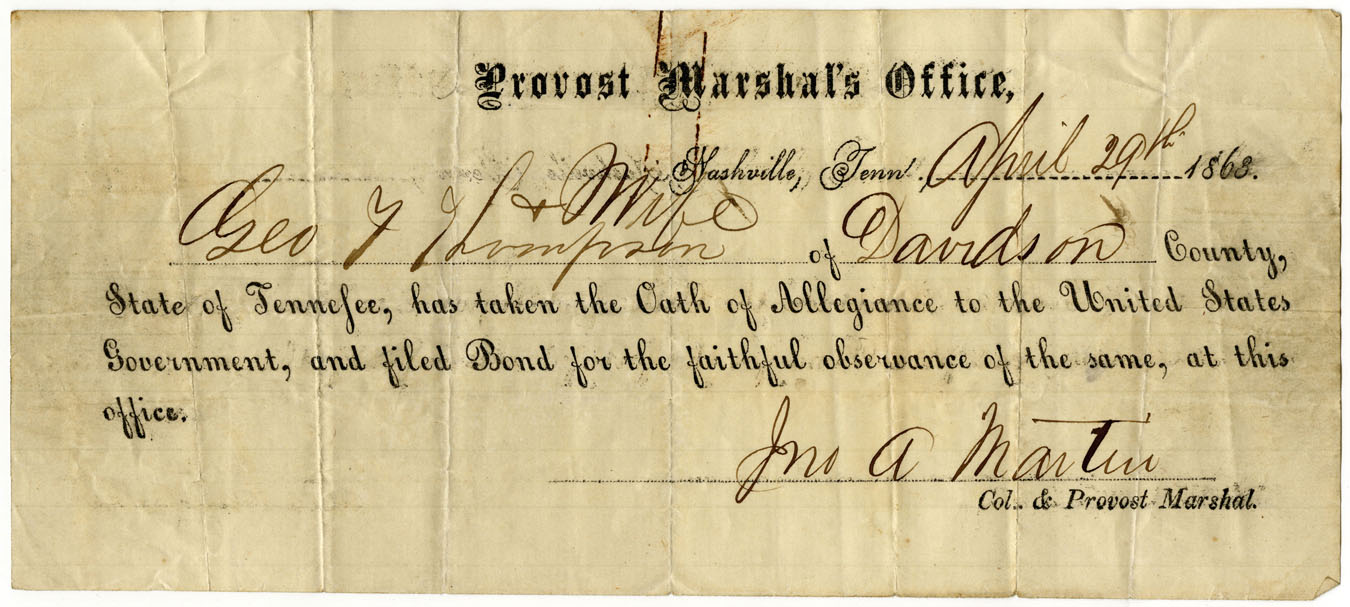 Provost Marshal's Office,
Nashville, Tenn. April 29th 1863.
& Wife
Geo F Thompson of Davidson County,
State of Tenneſsee, has taken the Oath of Allegiance to the United States
Government, and filed Bond for the faithful observance of the same, at this
office.
Jno A Martin
Col. & Provost Marshal.